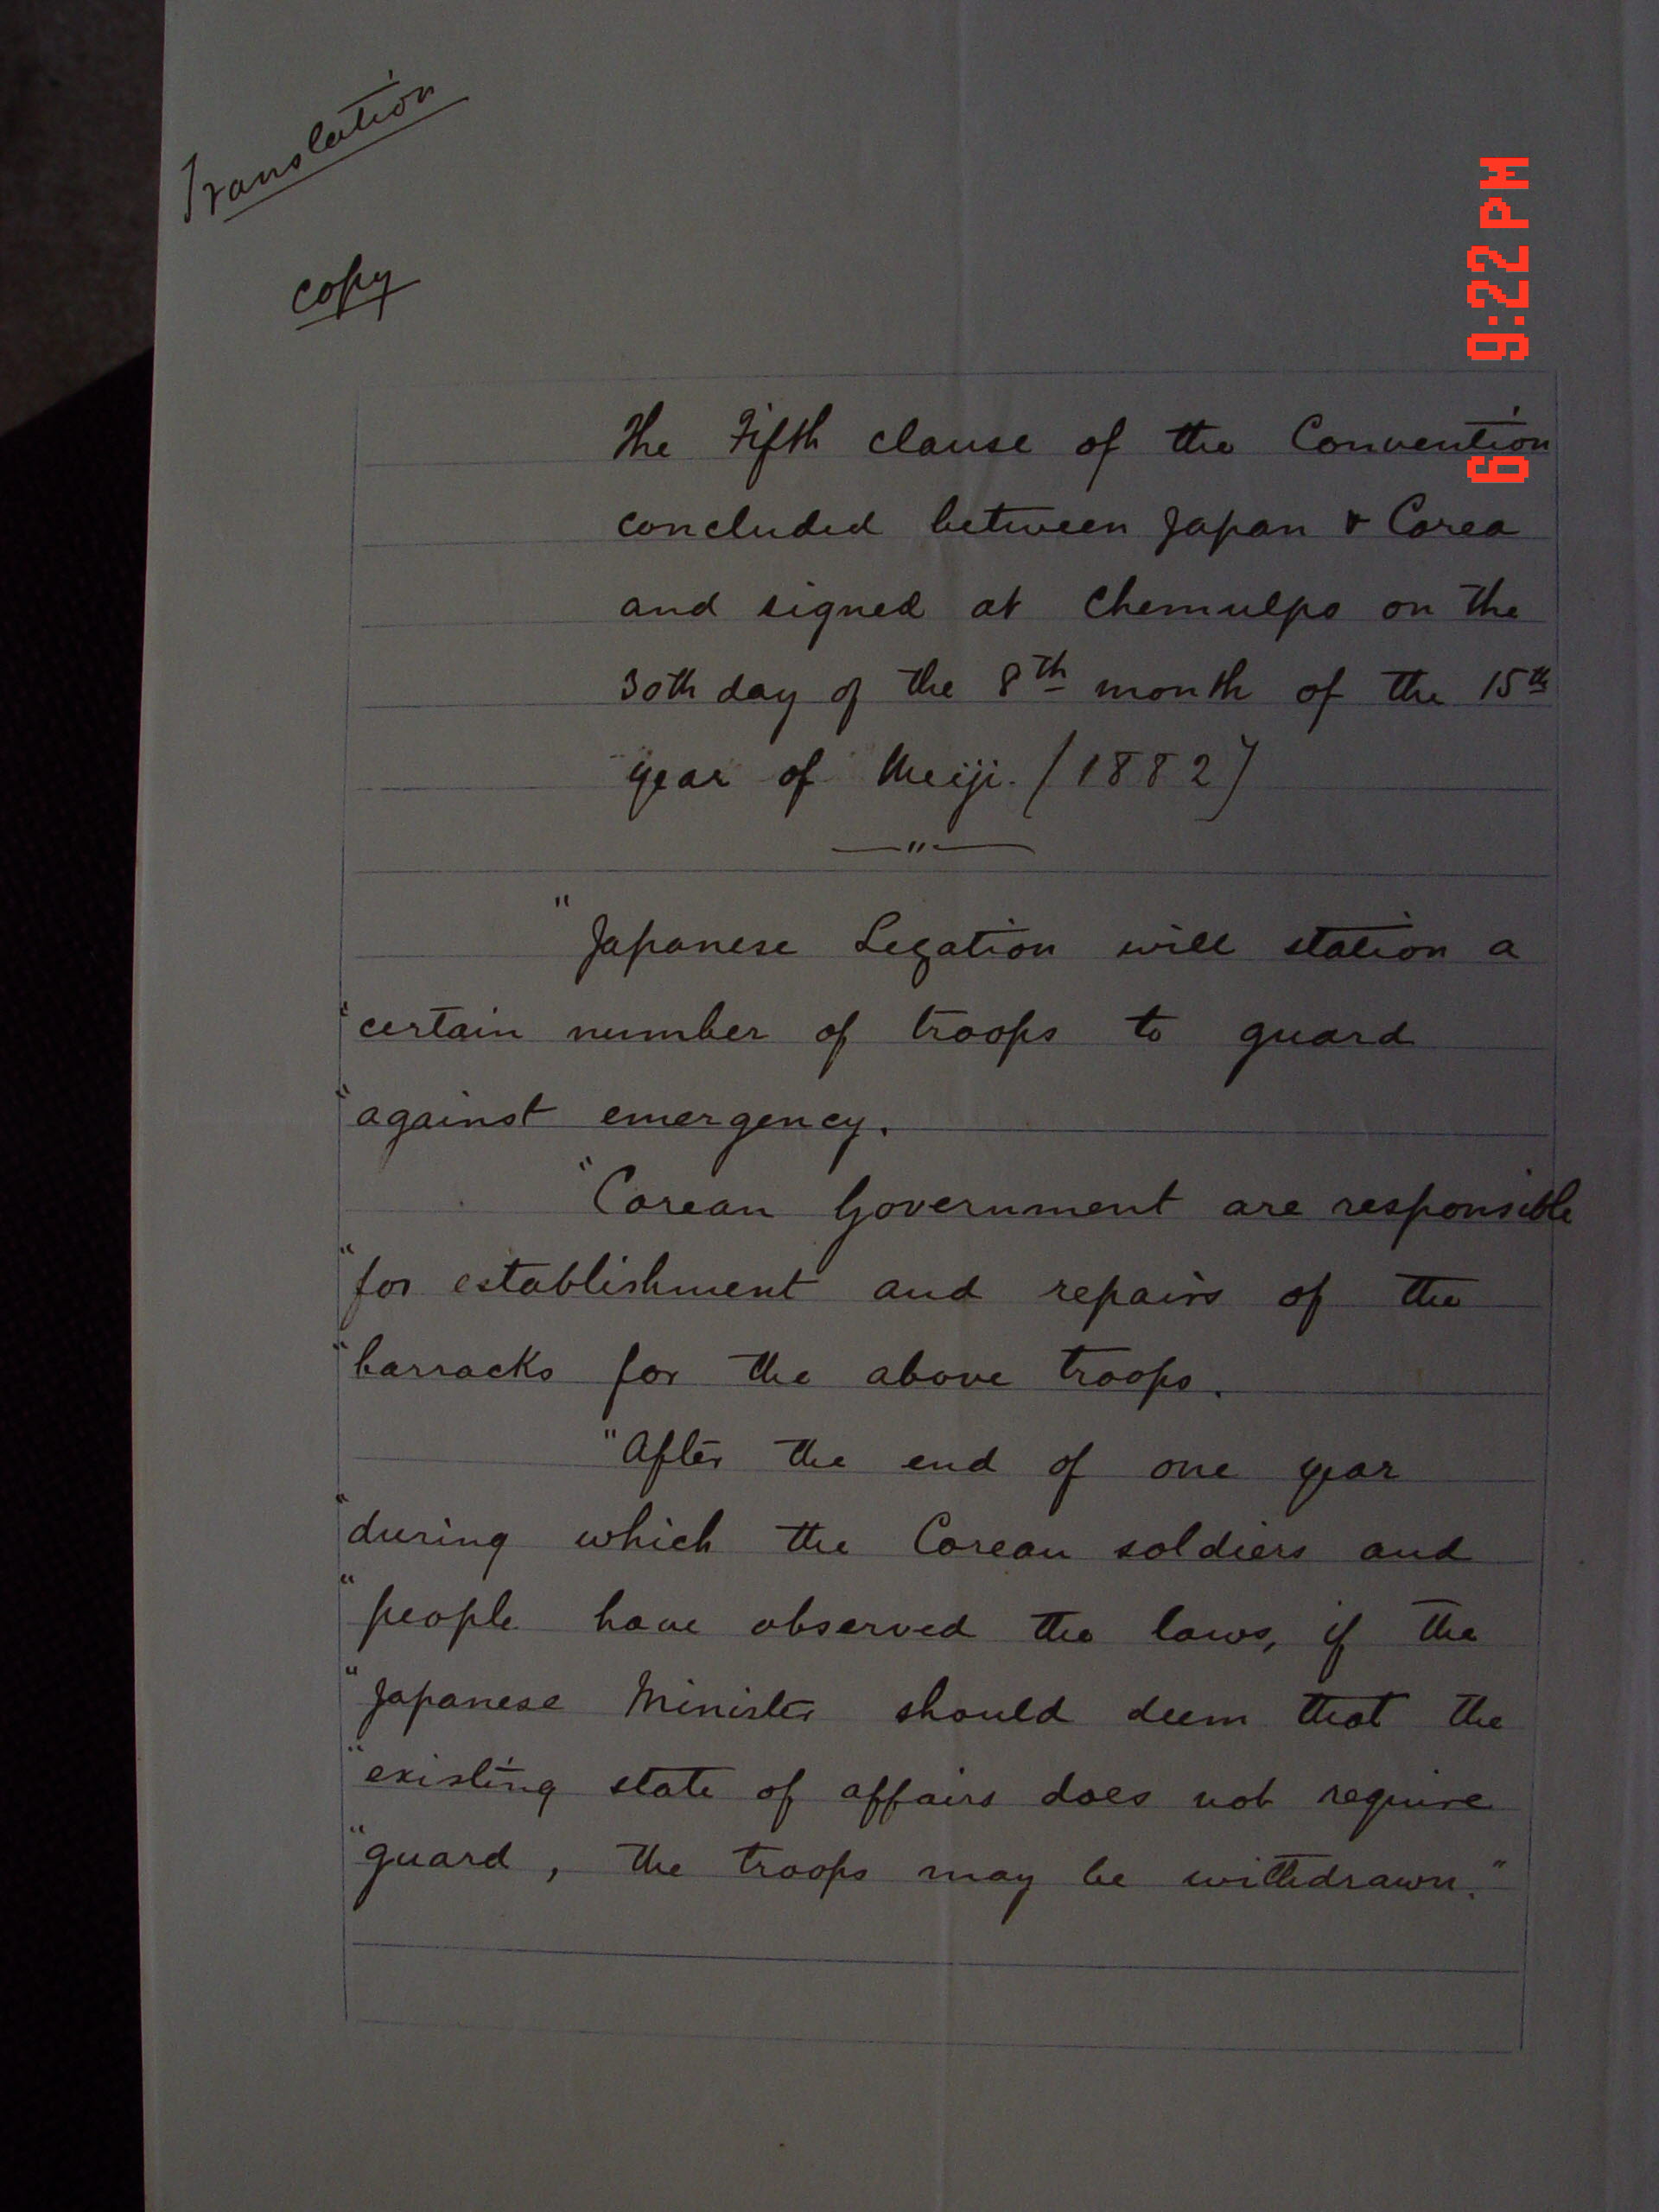 Translation
copy
The Fifth clause of the Convention
concluded between Japan & Corea
and signed at Chemulpo on the
30th day of the 8th month of the 15th
year of Meiji. (1882)
—"—
"Japanese Legation will station a
"certain number of troops to guard
"against emergency.
"Corean Government are responsible
"for establishment and repairs of the
"barracks for the above troops.
"After the end of one year
"during which the Corean soldiers and
"people have observed the laws, if the
"Japanese Minister should deem that the
"existing state of affairs does not require
"guard, the troops may be withdrawn."
6 9:22 PM